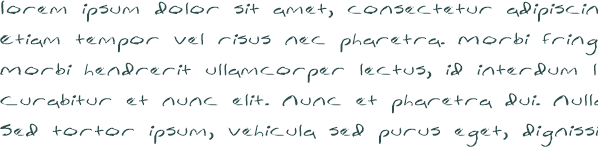 lorem ipsum dolor sit amet, consectetur adipiscin
etiam tempor vel risus nec pharetra. Morbi fring
Morbi hendrerit ullamcorper lectus, id interdum l
Curabitur et nunc elit. Nunc et pharetra dui. Nulla
Sed tortor ipsum, vehicula sed purus eget, digniss